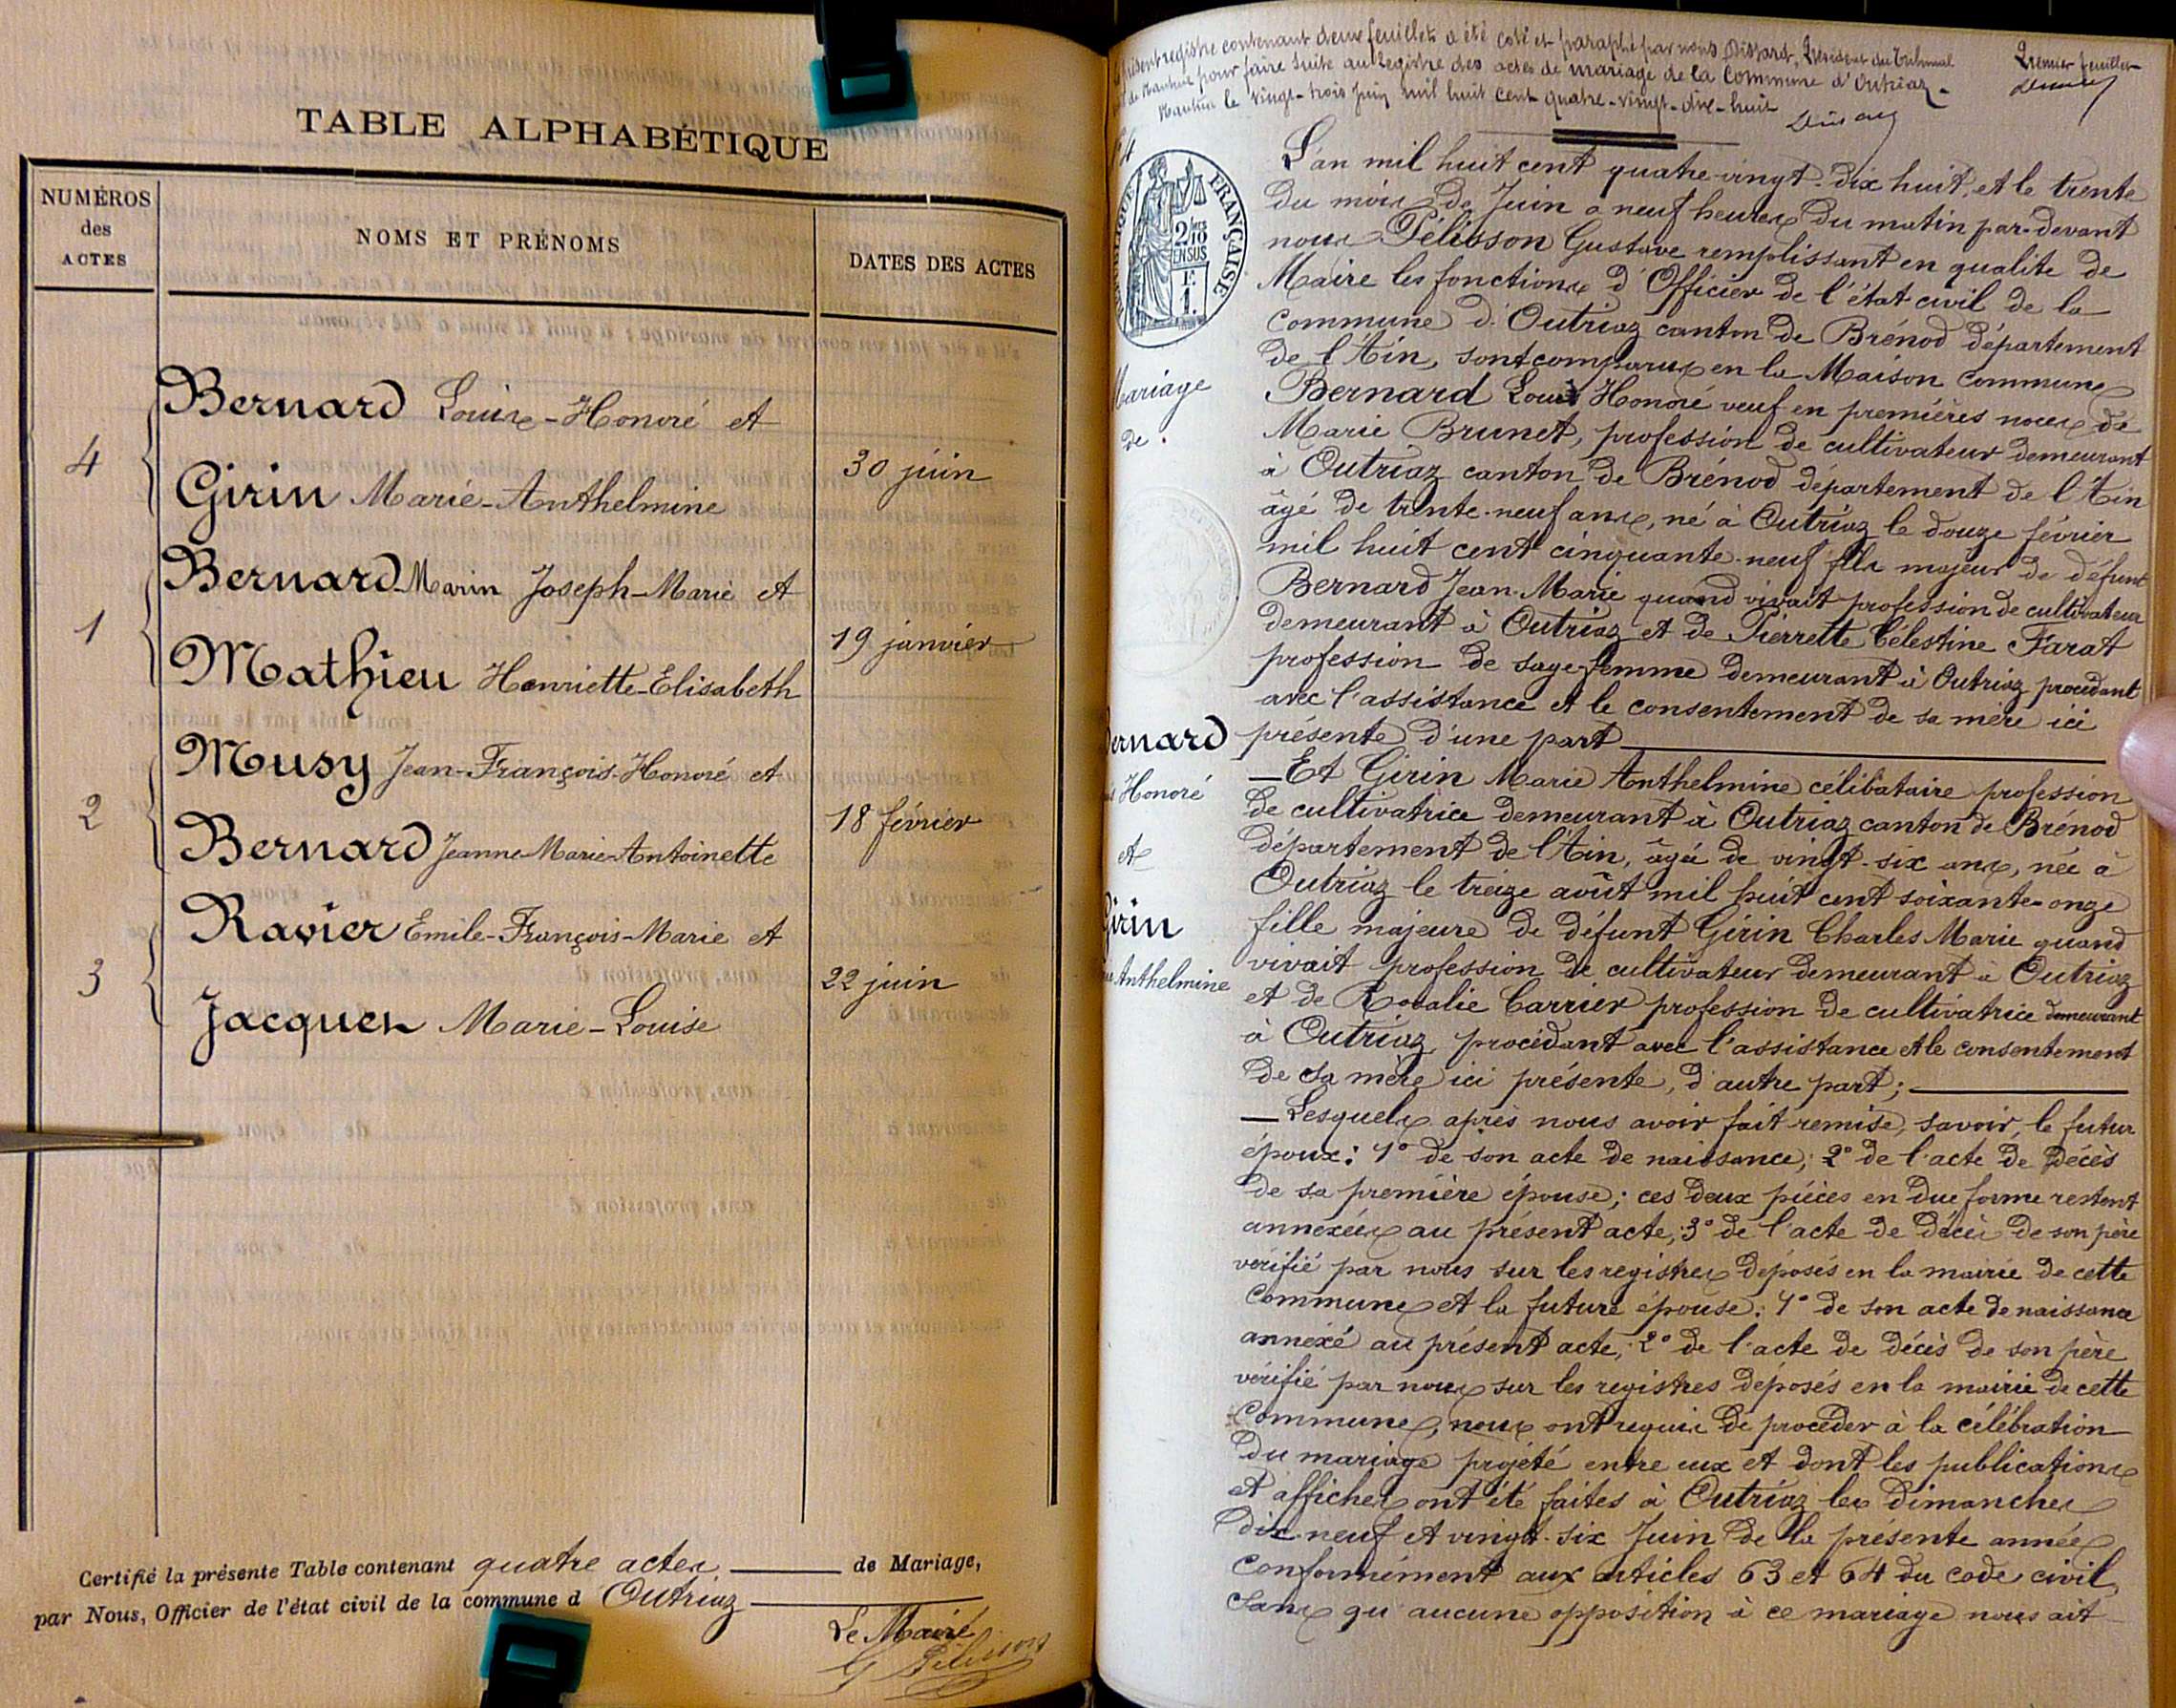 TABLE ALPHABÉTIQUE
NUMÉROS
des
ACTES
NOMS ET PRÉNOMS
DATES DES ACTES
Bernard Louis-Honoré et
4
30 juin
Girin Marie-Anthelmine
Bernard-Marin Joseph-Marie et
1
19 janvier
Mathieu Henriette-Elisabeth
Musy Jean-François-Honoré et
2
18 février
Bernard Jeanne-Marie-Antoinette
Ravier Emile-François-Marie et
3
22 juin
Jacques Marie-Louise
Certifié la présente Table contenant quatre actes de Mariage,
par Nous, Officier de l'état civil de la commune d Outriaz
Le Maire
G Pélisson
présent registre contenant deux feuillets a été coté et paraphé par nous Dissard, Président du Tribunal
de Nantua pour faire suite au registre des actes de mariage de la Commune d'Outriaz.
Nantua le vingt-trois Juin mil huit cent quatre-vingt-dix-huit
Premier feuillet
4
RÉPUBLIQUE FRANÇAISE
2/10
EN SUS
1F.
Mariage
de
Bernard
Honoré
et
Girin
Anthelmine
L'an mil huit cent quatre-vingt-dix huit, et le trente
du mois de Juin a neuf heures du matin par-devant
nous Pélisson Gustave remplissant en qualité de
Maire les fonctions d'Officier de l'état civil de la
commune d'Outriaz canton de Brénod département
de l'Ain, sont comparus en la Maison commune
Bernard Louis Honoré veuf en premières noces de
Marie Brunet, profession de cultivateur demeurant
à Outriaz canton de Brénod département de l'Ain
âgé de trente-neuf ans, né à Outriaz le douze février
mil huit cent cinquante-neuf fils majeur de défunt
Bernard Jean-Marie quand vivait profession de cultivateur
demeurant à Outriaz et de Pierrette Célestine Farat
profession de sage-femme demeurant à Outriaz procédant
avec l'assistance et le consentement de sa mère ici
présente d'une part
Et Girin Marie Anthelmine célibataire profession
de cultivatrice demeurant à Outriaz canton de Brénod
département de l'Ain, âgée de vingt-six ans, née à
Outriaz le treize août mil huit cent soixante-onze
fille majeure de défunt Girin Charles Marie quand
vivait profession de cultivateur demeurant à Outriaz
et de Rosalie Carrier profession de cultivatrice demeurant
à Outriaz, procédant avec l'assistance et le consentement
de sa mère ici présente, d'autre part;
Lesquels après nous avoir fait remise, savoir, le futur
époux: 1° de son acte de naissance; 2° de l'acte de décès
de sa première épouse; ces deux pièces en due forme restent
annexées au présent acte; 3° de l'acte de décès de son père
vérifié par nous sur les registres déposés en la mairie de cette
Commune et la future épouse: 1° de son acte de naissance
annexé au présent acte; 2° de l'acte de décès de son père
vérifié par nous sur les registres déposés en la mairie de cette
Commune, nous ont requis de procéder à la célébration
du mariage projeté entre eux et dont les publications
et affiches ont été faites à Outriaz les dimanches
dix-neuf et vingt-six Juin de la présente année
conformément aux articles 63 et 64 du code civil,
sans qu'aucune opposition à ce mariage nous ait